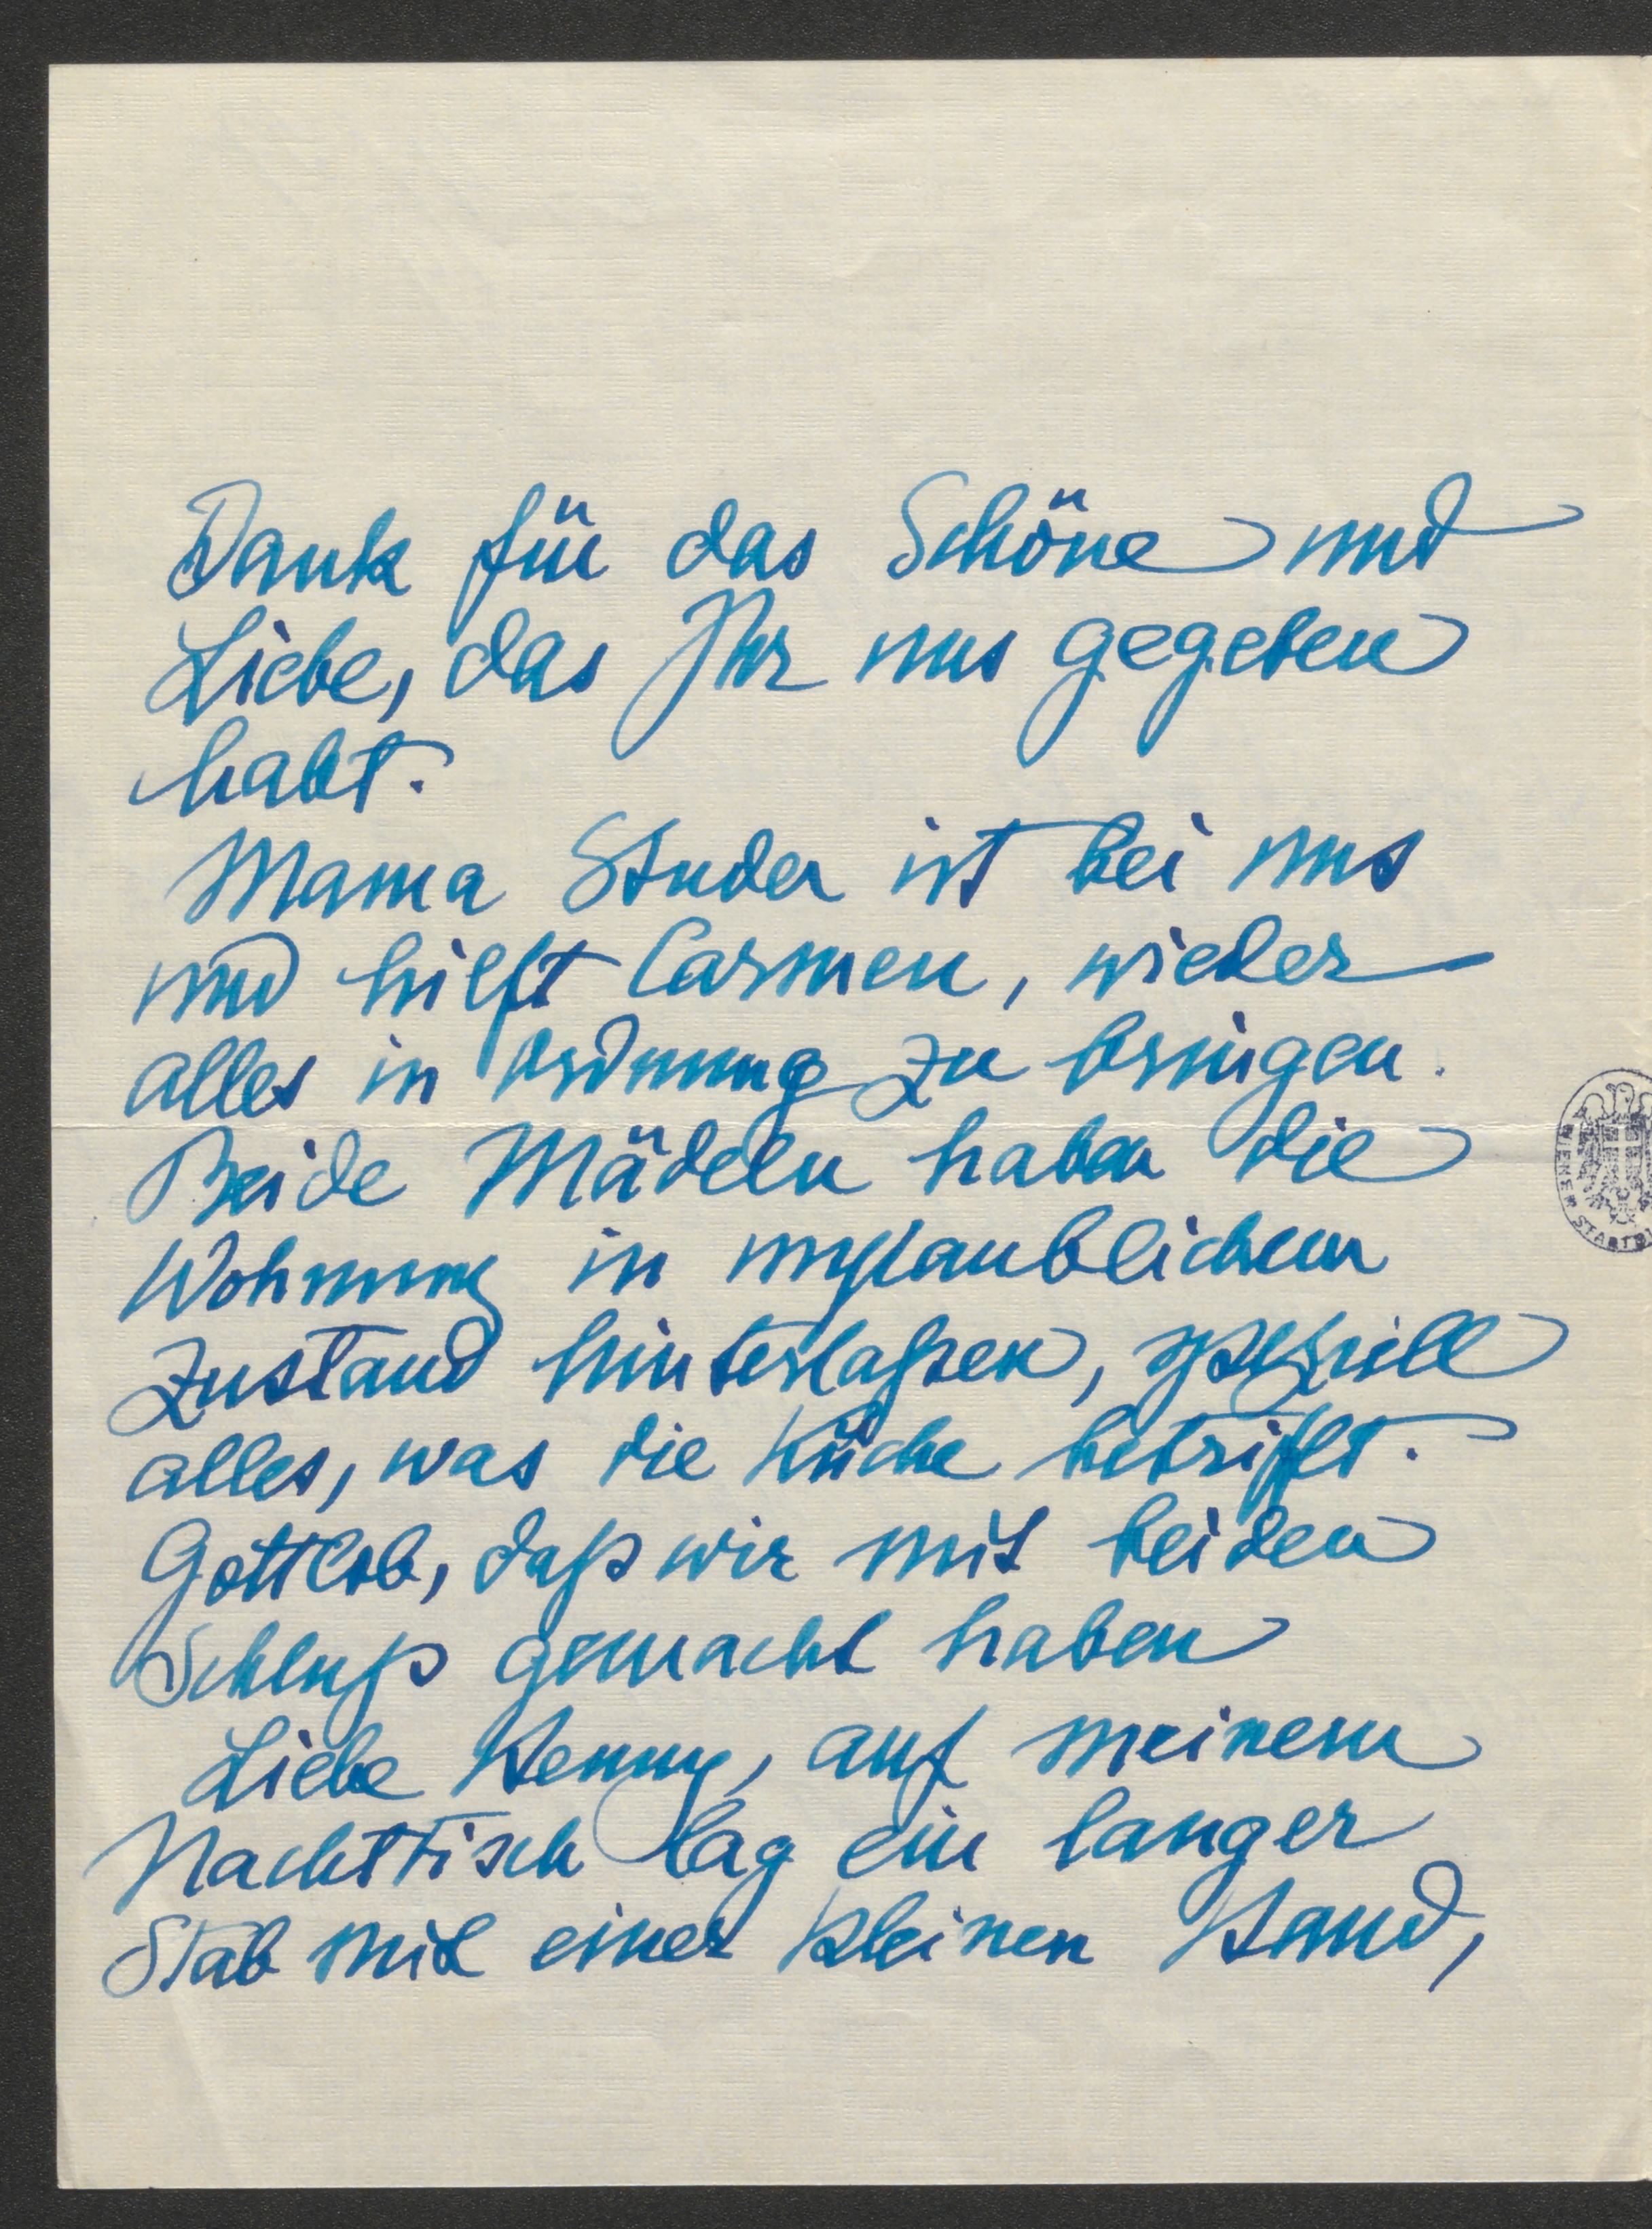 Dank für das Schöne und
Liebe, das Ihr uns gegeben
habt.
Mama Studer ist bei uns
und hilft Carmen, wieder
alles in Ordnung zu bringen.
Beide Mädeln haben die
Wohnung in unglaublichem
Zustand hinterlaßen, speziell
alles, was die Küche betrifft.
Gottlob, daß wir mit beiden
Schluß gemacht haben
Liebe Henny, auf meinem
Nachttisch lag ein langer
Stab mit einer kleinen Hand,
WIENER STADT